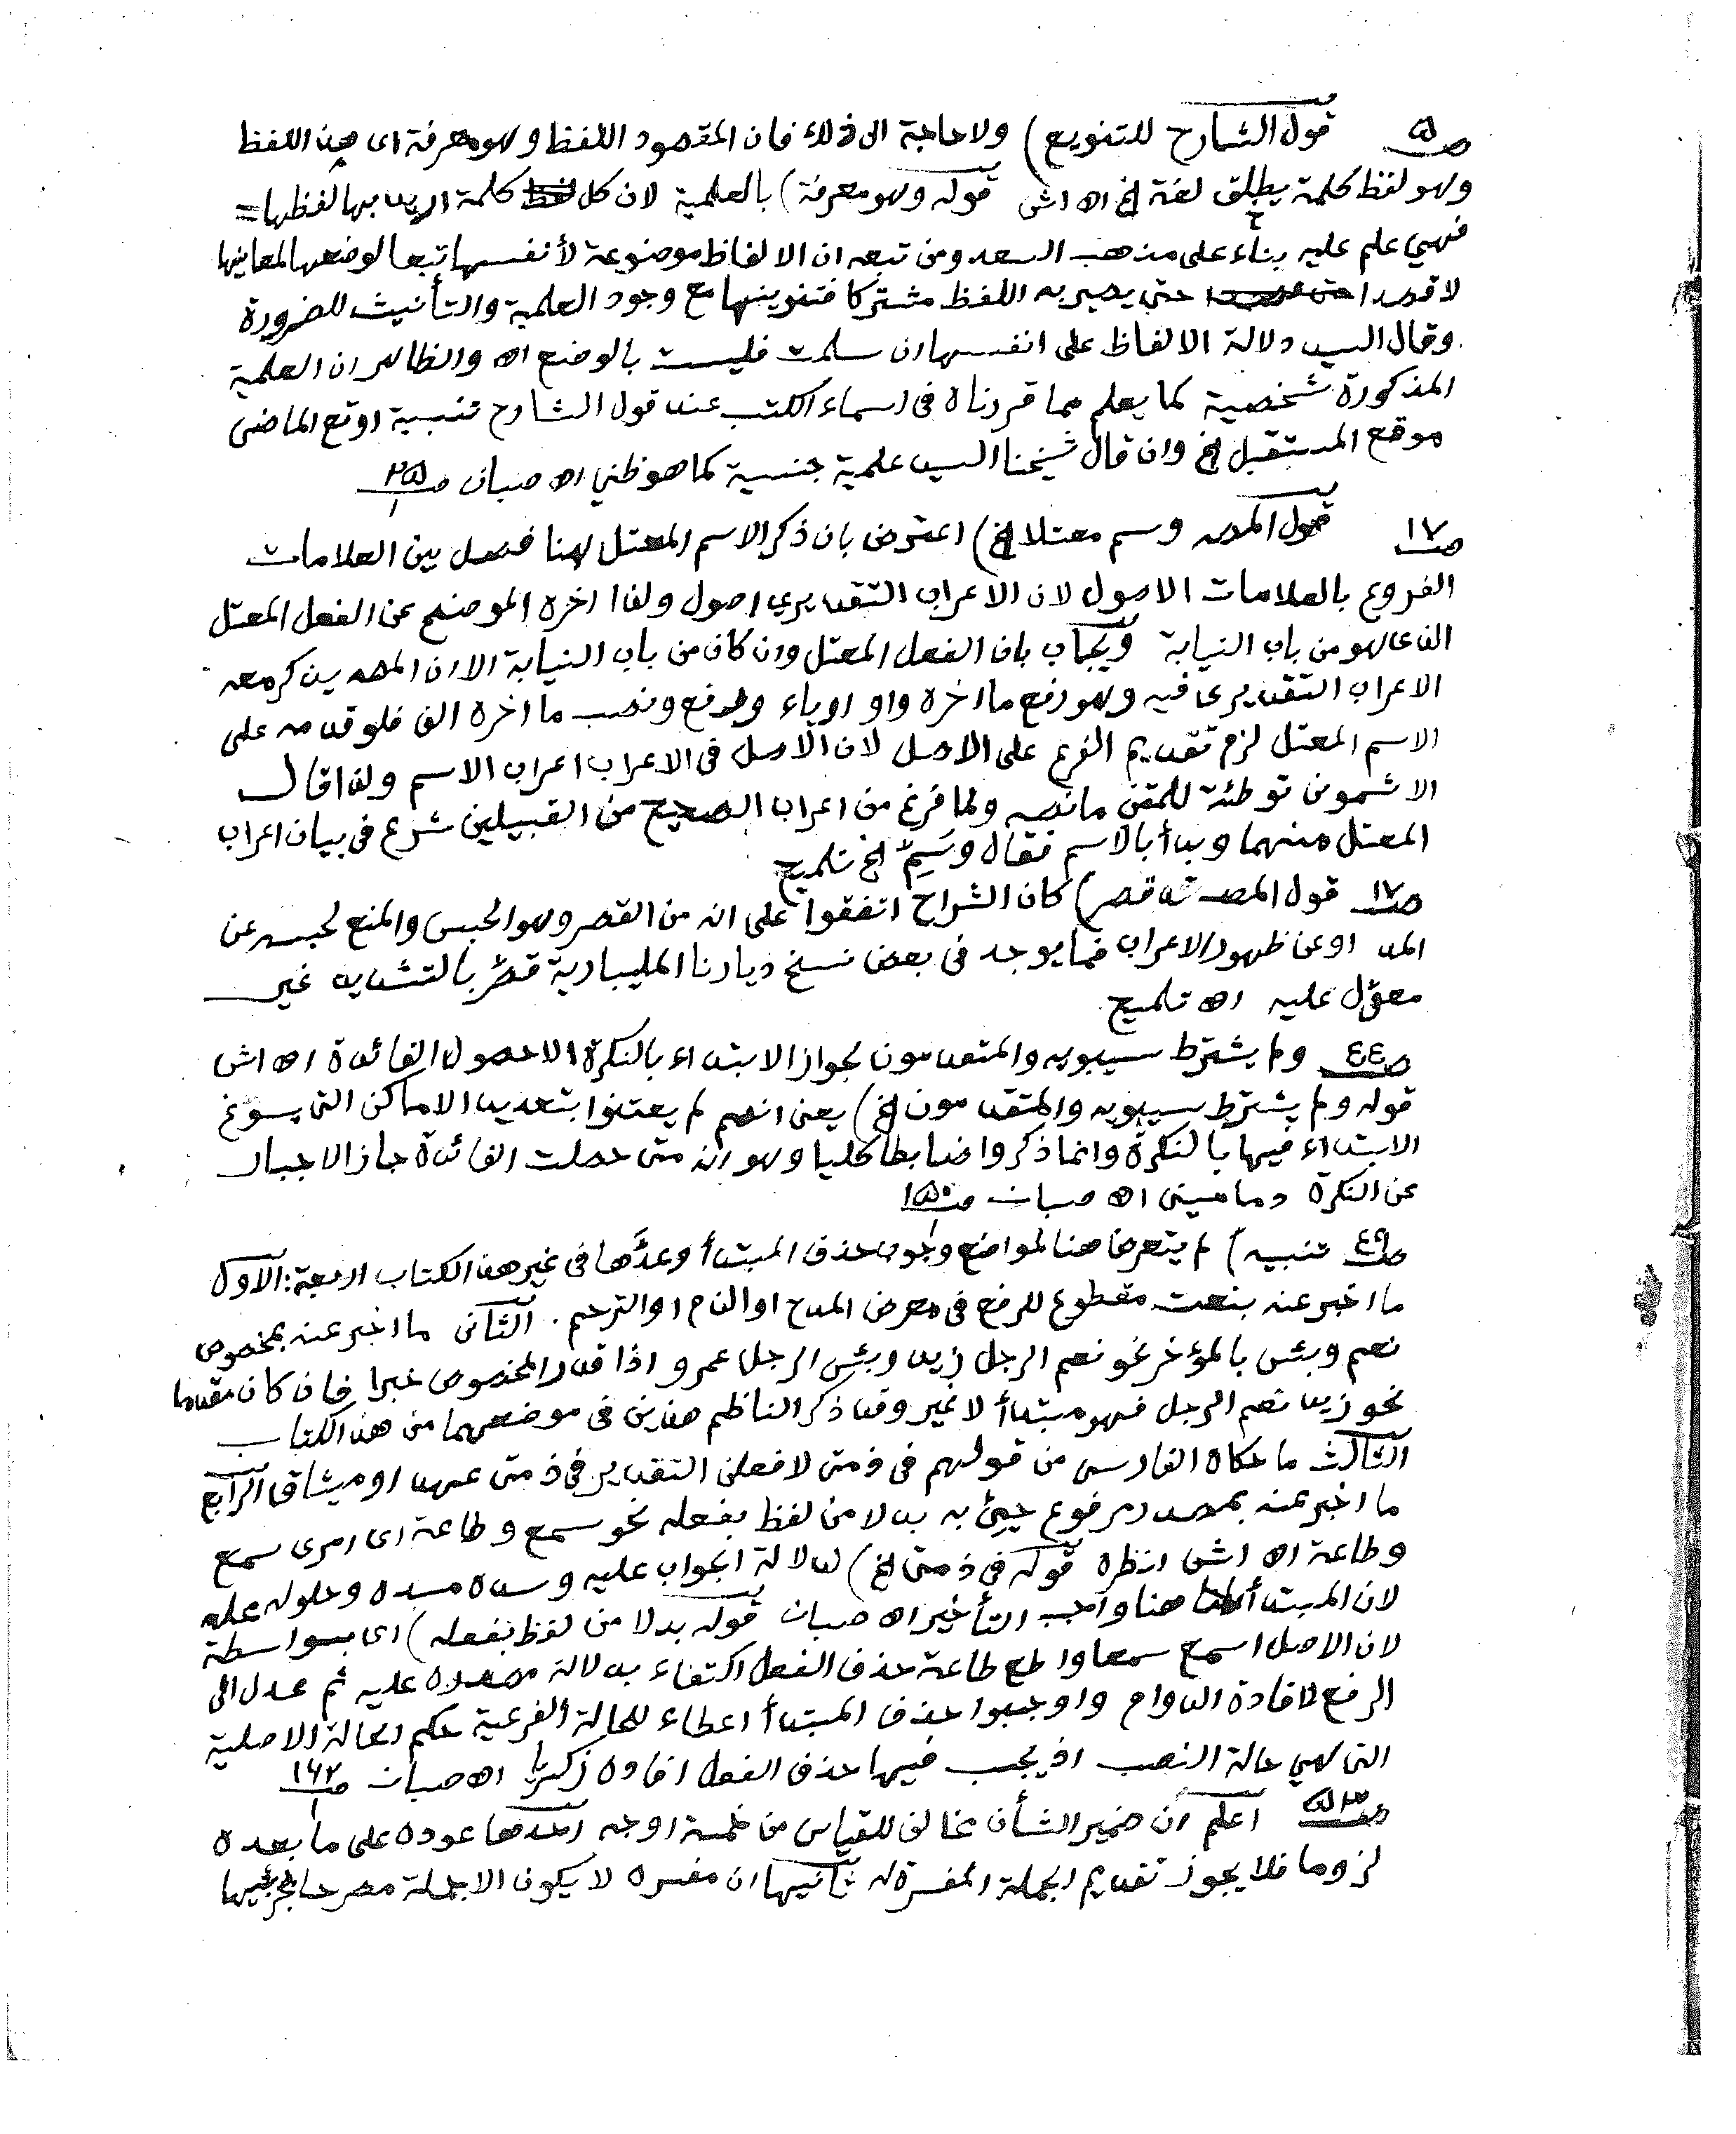 ص٥ قول الشارح للتنويع) ولا حاجة الى ذلك فان المقصود اللفظ وهو معرفة اى هذا اللفظ
وهو لفظ كلمة يطلق لغة الخ اه اش قوله وهو معرفة) بالعلمية لان كل كلمة اريد بها لفظها=
فهي علم عليه بناء على مذهب السعد ومن تبعه ان الالفاظ موضوعة لأنفسها تبعا لوضعها لمعانيها
لا قصدا حتى يصير به اللفظ مشتركا فتنوينها مع وجود العلمية والتأنيث للضرورة
وقال السيد دلالة الالفاظ على انفسها ان سلمت فليست بالوضع اه والظاهر ان العلمية
المذكورة شخصية كما يعلم مما قررناه فى اسماء الكتب عند قول الشارح تنبيه اوقع الماضى
موقع المستقبل الخ وان قال شيخنا السيد علمية جنسية كما هو ظني اه صبان ص٢٥
ص١٧ قول المصـ وسم معتلا الخ) اعترض بان ذكر الاسم المعتل هنا فصل بين العلامات
الفروع بالعلامات الاصول لان الاعراب التقديري اصول ولذا اخره الموضح عن الفعل المعتل
الذى هو من باب النيابة ويجاب بان الفعل المعتل وان كان من باب النيابة الا ان المصـ يذكر معه
الاعراب التقديرى فيه وهو رفع ما اخره واو او ياء ورفع ونصب ما اخره الف فلو قدمه على
الاسم المعتل لزم تقديم الفرع على الاصل لان الاصل فى الاعراب اعراب الاسم ولذا قال
الاشمونى توطئة للمتن ما نصه ولما فرغ من اعراب الصحيح من القبيلين شرع فى بيان اعراب
المعتل منهما وبدأ بالاسم فقال وسَمِّ الخ تلميح
ص١٧ قول المصـ قد قصر) كان الشراح اتفقوا على انه من القصر وهو الحبس والمنع لحبسه عن
المد او عن ظهور الاعراب فما يوجد فى بعض نسخ ديارنا المليبارية قصّر بالتشديد غير
معوّل عليه اه تلميح
ص٤٤ ولم يشترط سيبويه والمتقدمون لجواز الابتداء بالنكرة الا حصول الفائدة اه اش
قوله ولم يشترط سيبويه والمتقدمون الخ) يعنى انهم لم يعتنوا بتعديد الاماكن التى يسوغ
الابتداء فيها بالنكرة وانما ذكروا ضابطا كليا وهو انه متى حصلت الفائدة جاز الاخبار
عن النكرة دمامينى اه صبان ص١٥٠
ص٤٩ تنبيه) لم يتعرض هنا لمواضع وجوب حذف المبتدأ وعدَّها فى غير هذا الكتاب اربعة: الاول
ما اخبر عنه بنعت مقطوع للرفع فى معرض المدح او الذم او الترحم. الثانى ما اخبر عنه بمخصوص
نعم وبئس بالمؤخر نحو نعم الرجل زيد وبئس الرجل عمرو اذا قدر المخصوص خبرا فان كان مقدما
نحو زيد نعم الرجل فهو مبتدأ لا غير وقد ذكر الناظم هذين فى موضعهما من هذا الكتاب
الثالث ما حكاه الفارسى من قولهم فى ذمتى لافعلن التقدير فى ذمتى عهد او ميثاق الرابع
ما اخبر عنه بمصدر مرفوع جيئ به بدلا من لفظ بفعله نحو سمع وطاعة اى امرى سمع
وطاعة اه اش انظره قوله فى ذمتى الخ) لدلالة الجواب عليه وسده مسده وحلوله محله
لان المبتدأ هنا واجب التأخير اه صبان قوله بدلا من لفظ بفعله) اى بواسطة
لان الاصل اسمع سمعا واطع طاعة حذف الفعل اكتفاء بدلالة مصدره عليه ثم عدل الى
الرفع لافادة الدوام واوجبوا حذف المبتدأ اعطاء للحالة الفرعية حكم الحالة الاصلية
التى هي حالة النصب اذ يجب فيها حذف الفعل افاده زكريا اه صبان ص١٦٢
ص٥٣ اعلم ان ضمير الشأن مخالف للقياس من خمسة اوجه احدها عوده على ما بعده
لزوما فلا يجوز تقديم الجملة المفسرة له ثانيها ان مفسره لا يكون الا جملة مصرحا بجزئيها